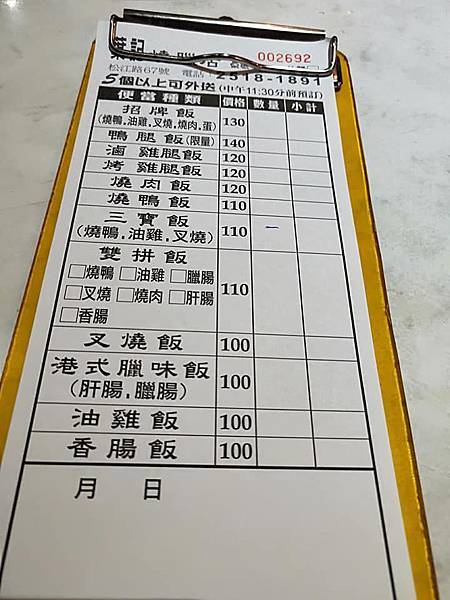 葉記燒腊
002692
松江路67號 電話 2518-1891
5個以上可外送(中午11:30分前預訂)
便當種類 價格 數量 小計
招牌飯 130
(燒鴨,油雞,叉燒,燒肉,蛋)
鴨腿飯(限量) 140
滷雞腿飯 120
烤雞腿飯 120
燒肉飯 120
燒鴨飯 110
三寶飯 110 一
(燒鴨,油雞,叉燒)
雙拼飯 110
□燒鴨 □油雞 □臘腸
□叉燒 □燒肉 □肝腸
□香腸
叉燒飯 100
港式臘味飯 100
(肝腸,臘腸)
油雞飯 100
香腸飯 100
月 日